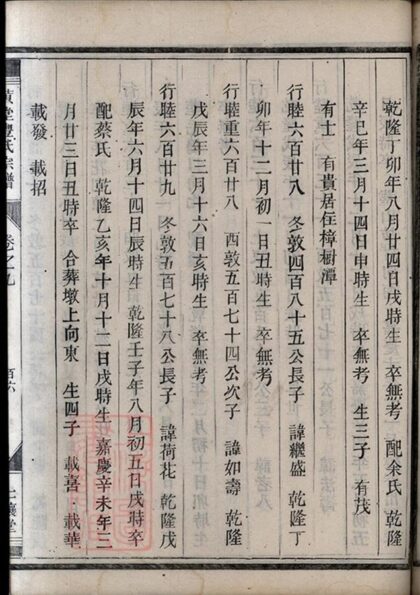 乾隆丁卯年八月廿四日戌時生 卒無考 配余氏 乾隆
辛巳年三月十四日申時生 卒無考 生三子 有茂
有士 有貴居住樟樹潭
行睦六百廿八 冬敦四百八十五公長子 諱繼盛 乾隆丁
卯年十二月初一日丑時生 卒無考
行睦重六百廿八 西敦五百七十四公次子 諱如壽 乾隆
戊辰年三月十六日亥時生 卒無考
行睦六百廿九 冬敦五百七十八公長子 諱荷花 乾隆戊
辰年六月十四日辰時生 乾隆壬子年八月初五日戌時卒
配蔡氏 乾隆乙亥年十月十二日戌時生 嘉慶辛未年三
月廿三日丑時卒 合葬墩上向東 生四子 載喜 載華
載發 載招
堂 氏宗譜 卷之九 百六 堂